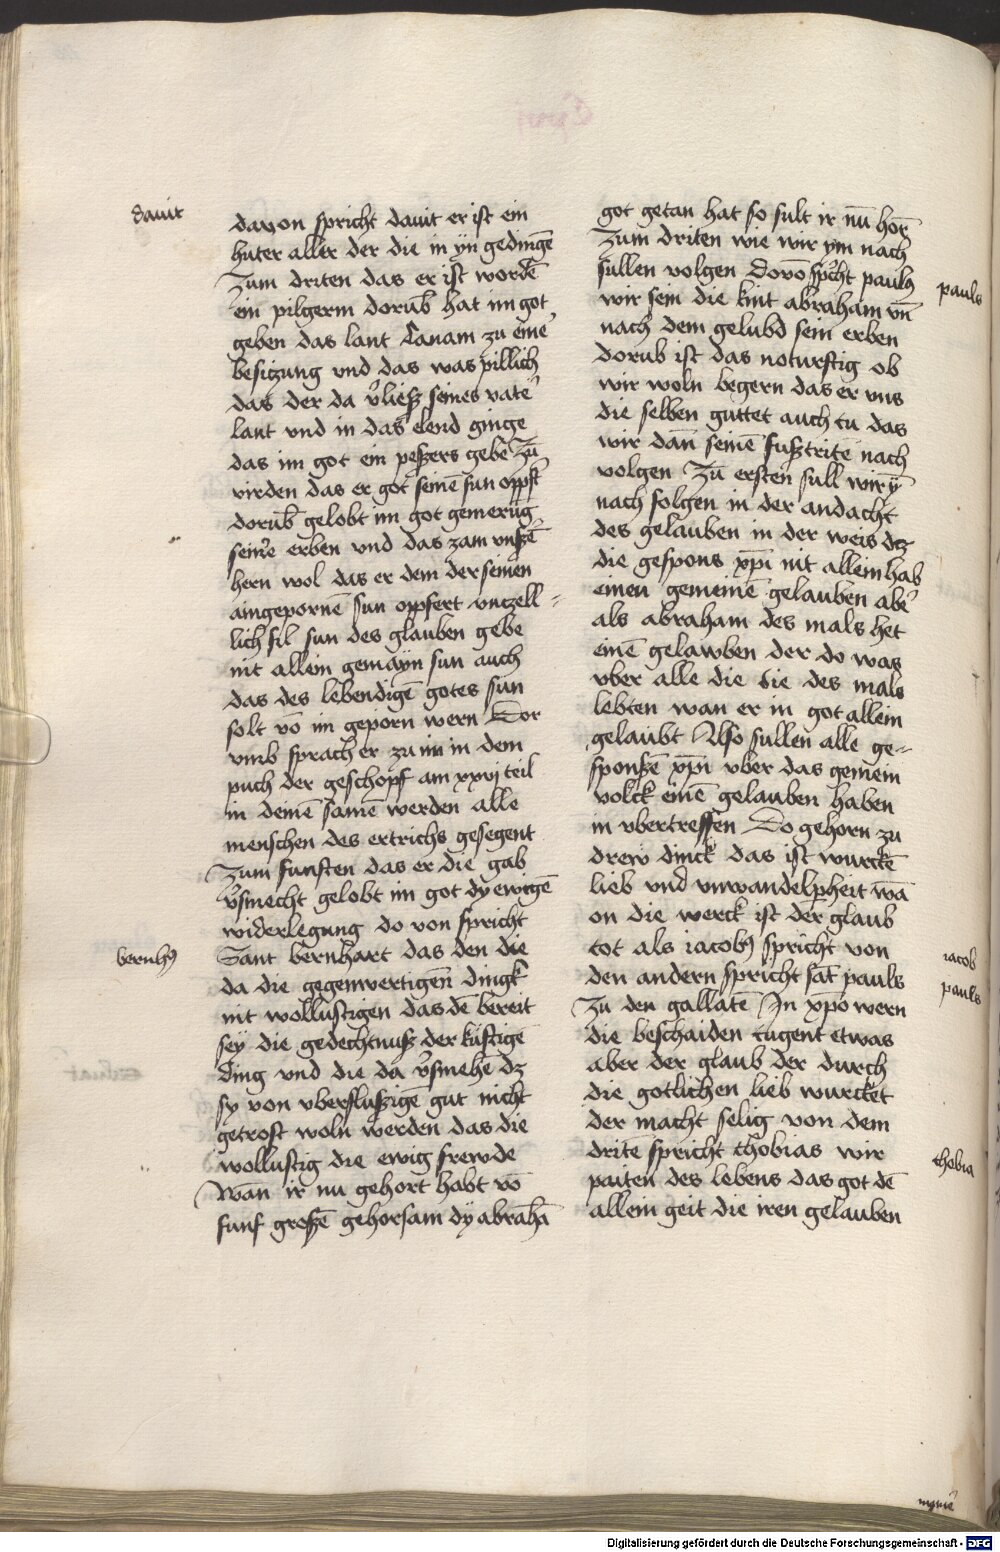 dauit
dauon spricht dauit er ist ein
huter aller der die in yn gedingē
Zum driten das er ist wordē
ein pilgerin dorūb hat im got
geben das lant Canam zu eine᷑
besitzung vnd das was pillich
das der da v᷑liesz seines vate᷑
lant vnd in das elend ginge
das im got ein peszers gebe Zū
virden das er got seinē sun oppf᷑t
dorūb gelobt im got gemerūg
seine᷑ erben vnd das zam vnszē
hern wol das er dem der seinen
aingepornē sun oppfert vntzell
lich fil sun des glauben gebe
nit allein gemayn sun auch
das des lebendigē gotes sun
solt vō im geporn wern Dor
vmb sprach er zu im in dem
puch der geschopf am xxvj teil
in deinē samē werden alle
menschen des ertrichs gesegent
Zum funften das er die gab
v᷑smecht gelobt im got dy ewigē
widerlegung do von spricht
bernhꝰ
Sant bernhart das den die
da die gegenwertigen dingk
nit wollustigen das dē bereit
sey die gedechtnusz der kūftigē
ding vnd die da v᷑smehē dz
sy von vberfluszigē gut nicht
getrost woln werden das die
wollustig die ewig frewde
Wān ir nu gehort habt vō
funf groszē gehorsam dy abrahā
got getan hat so sult ir nū hōr
Zum driten wie wir ym nach
sullen volgen Dovō sp᷑cht paulꝰ
pauls
wir sein die kint abraham vn̄
nach dem gelubd sein erben
dorub ist das noturftig ob
wir woln begern das er vns
die selben guttet auch tu das
wir dān seinē fusztritē nach
volgen Zū ersten sull wir ȳ
nach folgen in der andacht
des gelauben in der weis dz
die gespons xp̄i nit allein hab
einen gemeinē gelauben abe᷑
als abraham des mals het
einē gelawben der do was
vber alle die die des mals
lebten wan er in got allein
gelaubt Also sullen alle ge-
sponszē xp̄i vber das gemein
volck einē gelauben haben
in vbertreffen Do gehorn zu
drew dinck das ist wurckē
lieb vnd vnwandelperheit wā
on die werck ist der glaub
tot als iacobꝰ spricht von
iacob
den andern spricht sāt pauls
pauls
Zu den gallatē In xp̄o wern
die beschaiden tugent etwas
aber der glaub der durch
die gotlichen lieb wurcket
der macht selig von dem
dritē spricht thobias wir
thobia
paiten des lebens das got dē
allein geit die iren gelauben
Digitalisierung gefördert durch die Deutsche Forschungsgemeinschaft - DFG